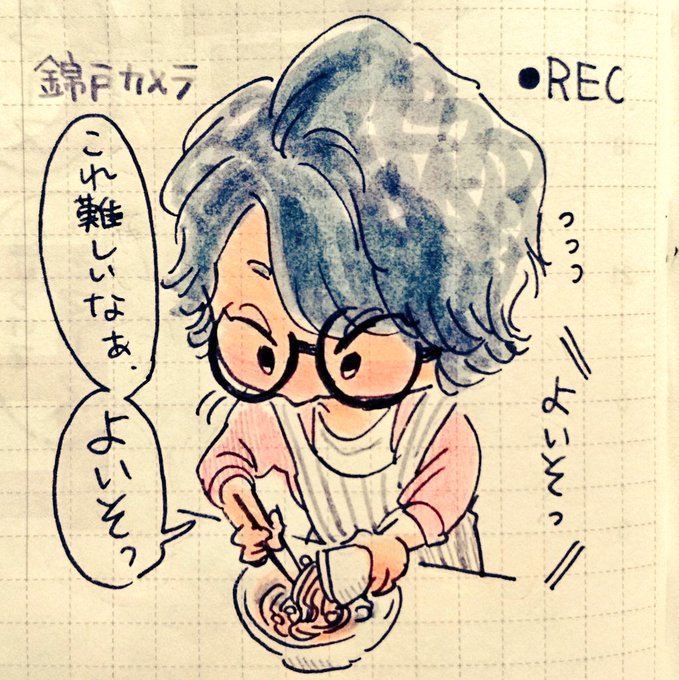 錦戸カメラ
●REC
これ難しいなぁ.
よいそっ
っっっ
よいそっ